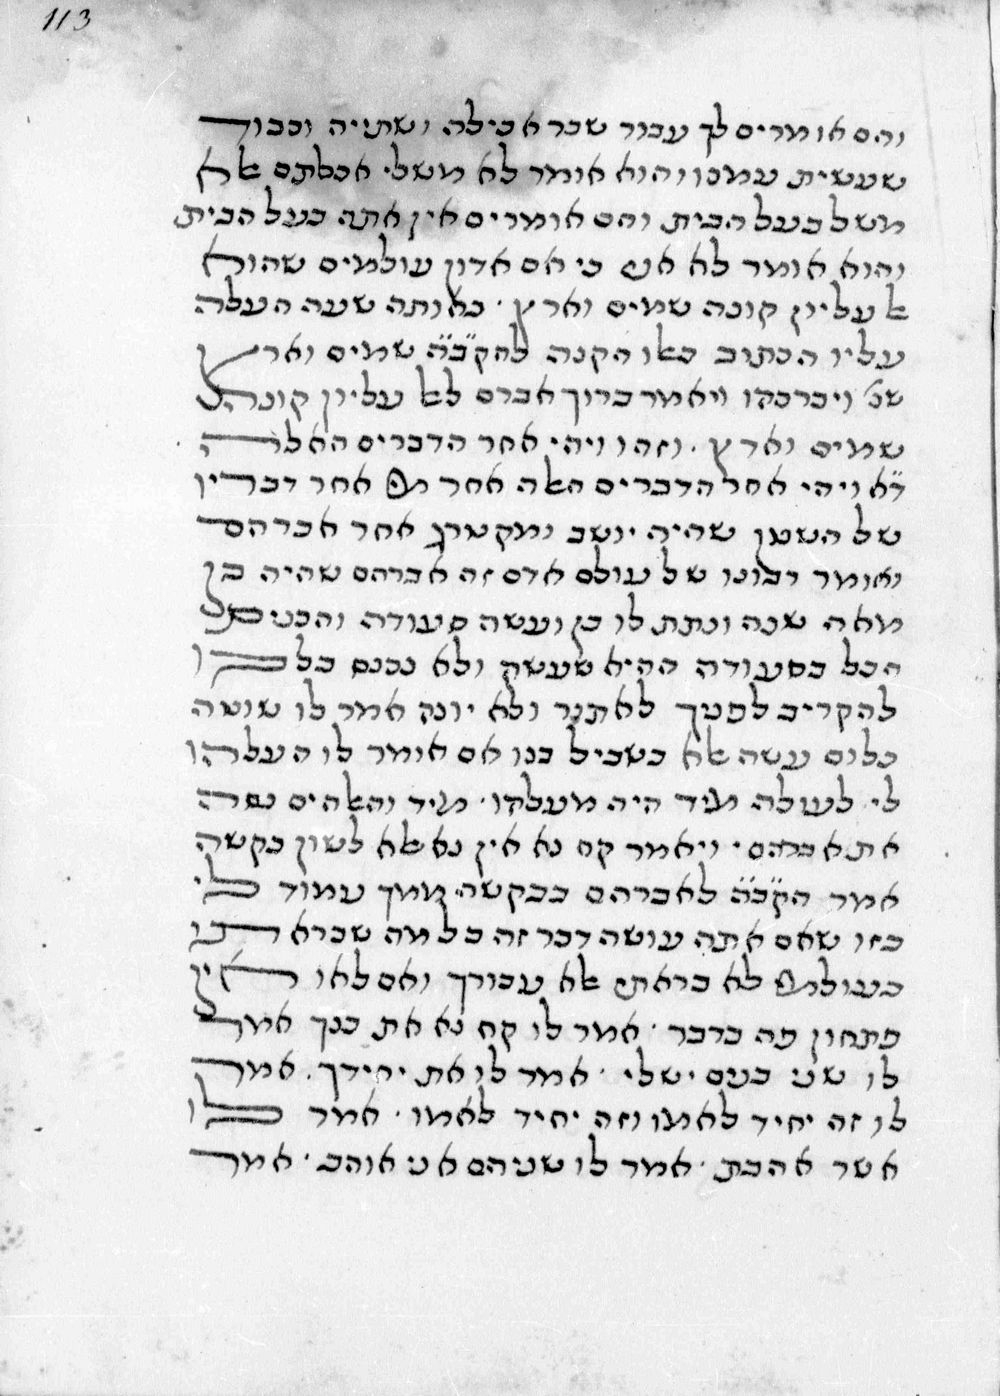 113
והם אומרים לך עבור שכר אכילה ושתייה וכבוד
שעשית עמנו והוא אומר לא משלי אכלתם אלא
משל בעל הבית והם אומרים אין אתה בעל הבית
והוא אומר לא אני כי אם אדון עולמים שהוא
אל עליון קונה שמים וארץ · באותה שעה העלה
עליו הכתוב כאלו הקנה להק״ב״ה שמים וארץ
שנ׳ ויברכהו ויאמר ברוך אברם לאל עליון קונה
שמים וארץ · וזהו ויהי אחר הדברים האלה
ד״א ויהי אחר הדברים האלה אחר אחר דבריו
של השטן שהיה יושב ומקטרג אחר אברהם
ואומר רבונו של עולם אדם זה אברהם שהיה בן
מאה שנה ונתת לו בן ועשה סעודה והכניס
הכל בסעודה ההיא שעשה ולא נכנס בלבו
להקריב לפניך לא תור ולא יונה אמר לו שוטה
כלום עשה אלא בשביל בנו אם אומר לו העלהו
לי לעולה מיד היה מעלהו · מיד והאלהים נסה
את אברהם · ויאמר קח נא אין נא אלא לשון בקשה
אמר הק״ב״ה לאברהם בבקשה ממך עמוד לי
בזו שאם אתה עושה דבר זה כל מה שבראתי
בעולמי לא בראתי אלא עבורך ואם לאו אין
פתחון פה בדבר · אמר לו קח נא את בנך אמר
לו שני בנים יש לי · אמר לו את יחידך · אמר
לו זה יחיד לאמו וזה יחיד לאמו · אמר לו
אשר אהבת · אמר לו שניהם אני אוהב · אמר